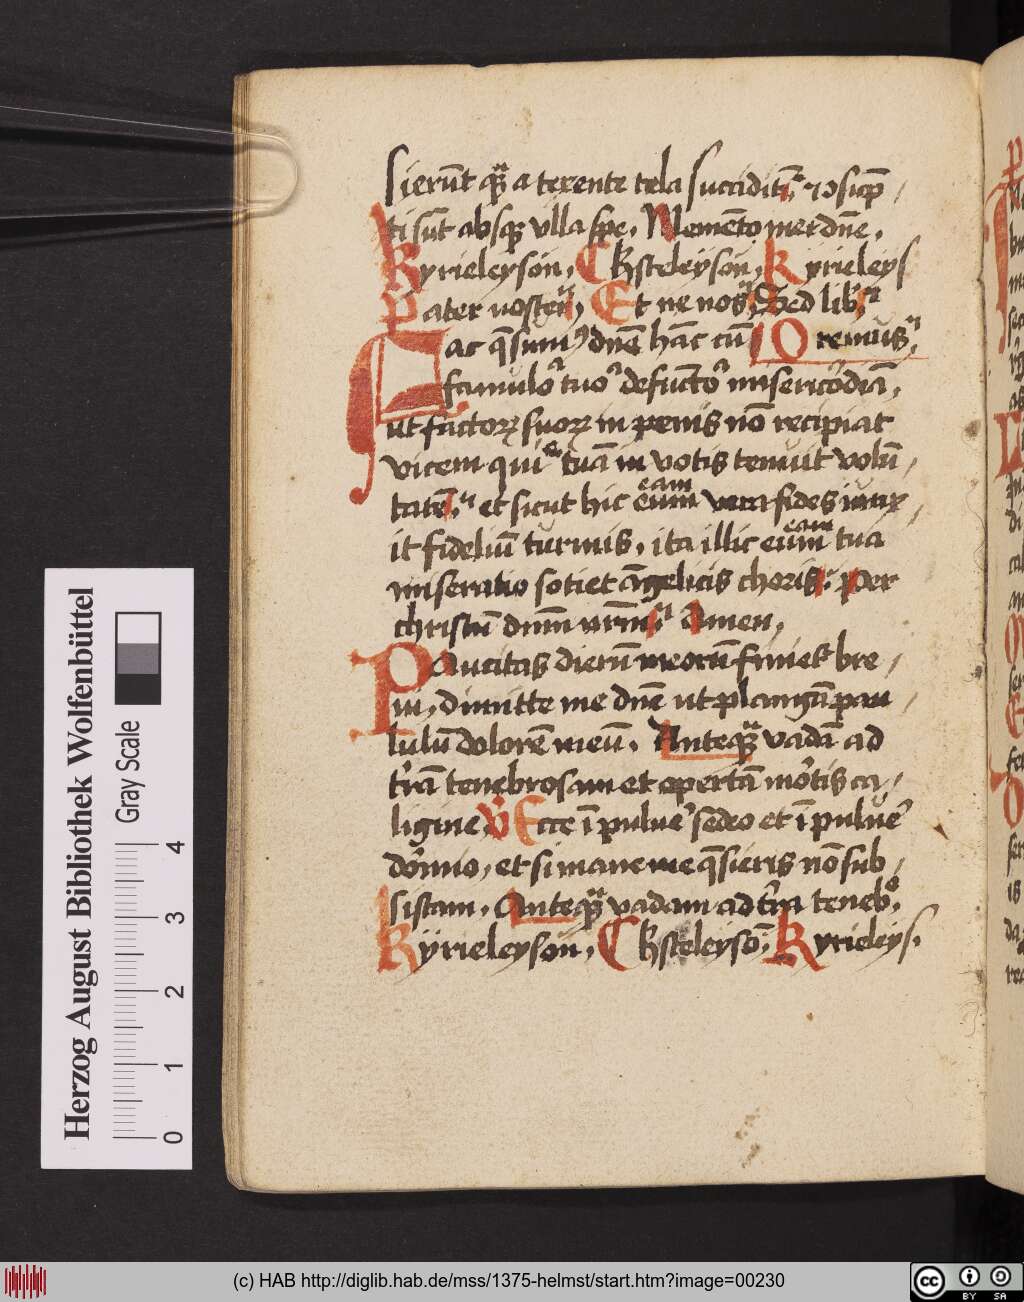 sierūt qͣ a texente tela succiditͬ ⁊ ɔsūp
ti sūt absqꝫ vlla spe. Memēto mei dn̄e.
Kyrieleyson. Ck̄steleyson. Kyrieleys
Pater nosterͬ. Et ne nosͬ. Sed lib̾ͣ
ac qs̄umꝰ dn̄e hāc cū Oremusͬ.
famuloͬ tuoͬ defūctoͬ misericordiā.
ut factoꝝ suoꝝ in penis nō recipiat
vicem qui tuā in votis tenuit volū
tatē. et sicut hic eam eum vera fides iunx
it fideliū turmis. ita illic eum eam tua
miseratio sotiet āgelicis choris. per
christū dnm̄ nrm̄. Amen.
Paucitas dierū meorū finiet bre
ui. dimitte me dn̄e ut plangā pau
lulū dolorē meū. Anteqͣ vadā ad
tr̄ā tenebrosam et opertā mortis ca
ligine. V̄ Ecce ī puluer̄ sedeo et ī puluer̄
dormio. et si mane me qs̄ieris nō sub
sistam. Anteqͣ vadam ad tr̄ā teneb̊.
Kyrieleyson. Ck̄steleysō. Kyrieleys.
Herzog August Bibliothek Wolfenbüttel
Gray Scale
0 1 2 3 4
(c) HAB http://diglib.hab.de/mss/1375-helmst/start.htm?image=00230
cc BY SA